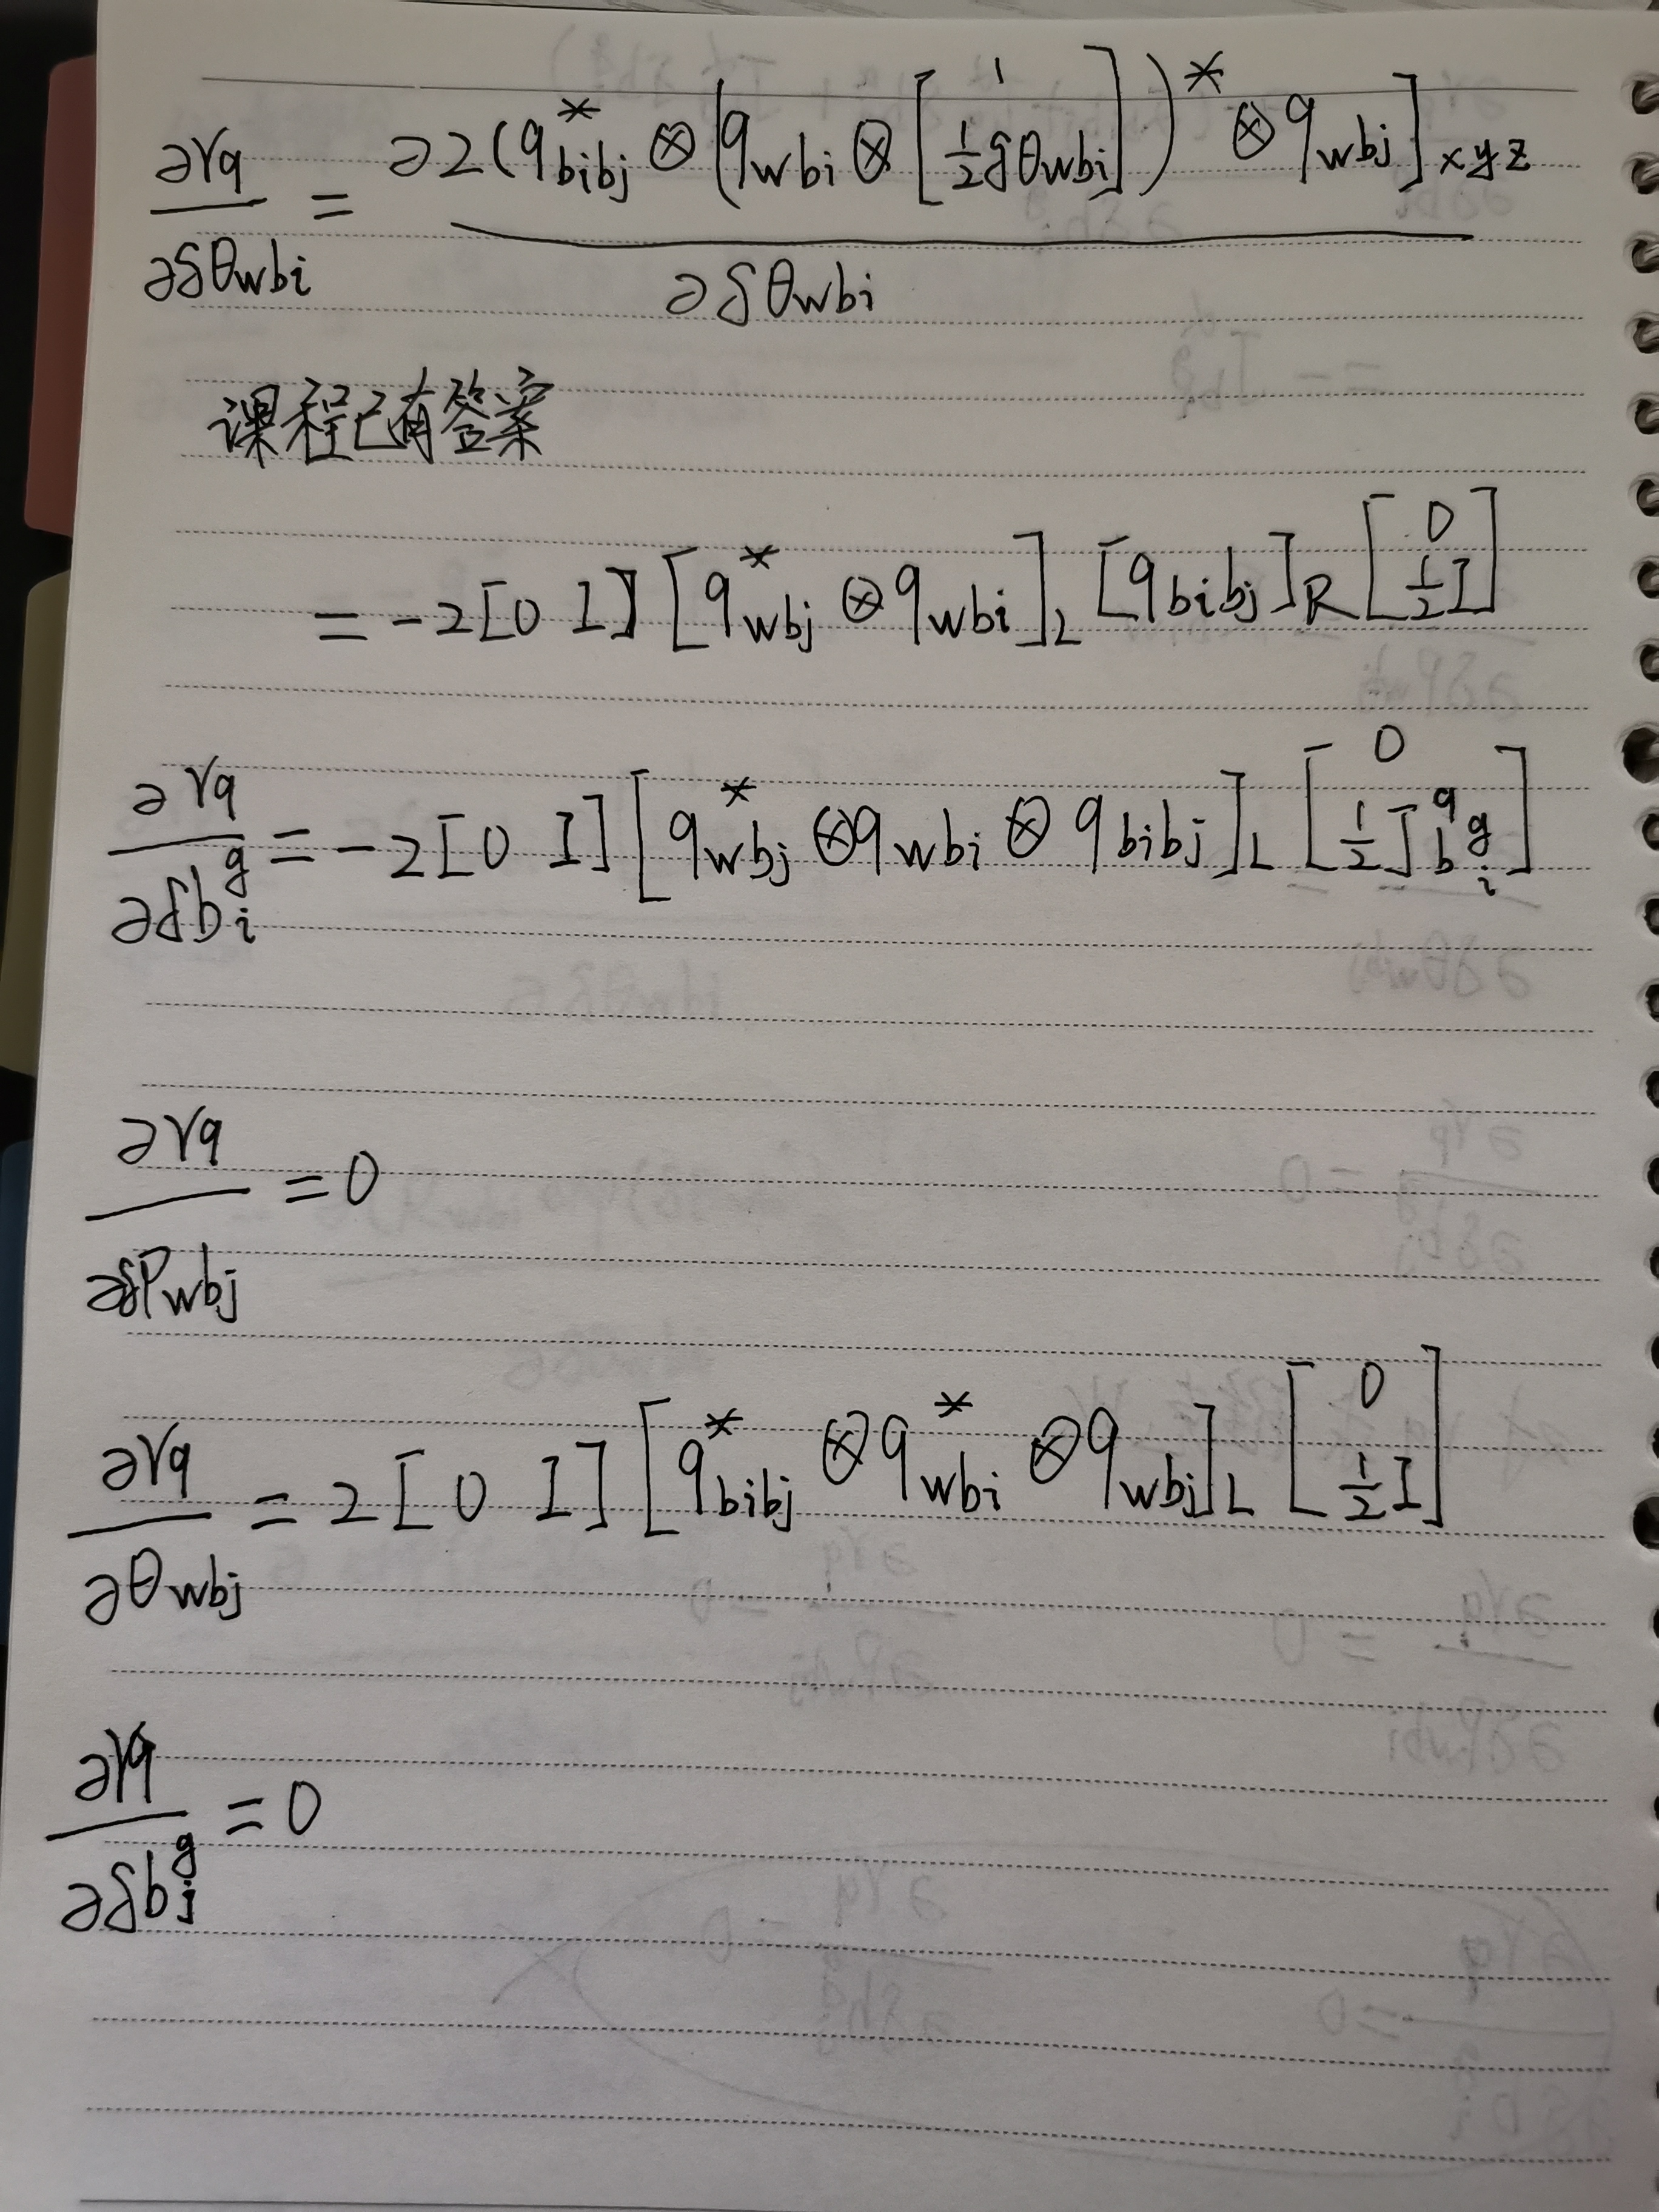 ∂rq / ∂δθwbi = ∂2(q*bibj ⊗ (qwbi ⊗ [1 ½δθwbi])* ⊗ qwbj]xyz / ∂δθwbi
课程已有答案
= -2[0 I] [q*wbj ⊗ qwbi]L [qbibj]R [0 ½I]
∂rq / ∂δb^g_i = -2[0 I] [q*wbj ⊗ qwbi ⊗ qbibj]L [0 ½J^q_b^g_i]
∂rq / ∂δPwbj = 0
∂rq / ∂θwbj = 2[0 I] [q*bibj ⊗ q*wbi ⊗ qwbj]L [0 ½I]
∂rq / ∂δb^g_j = 0